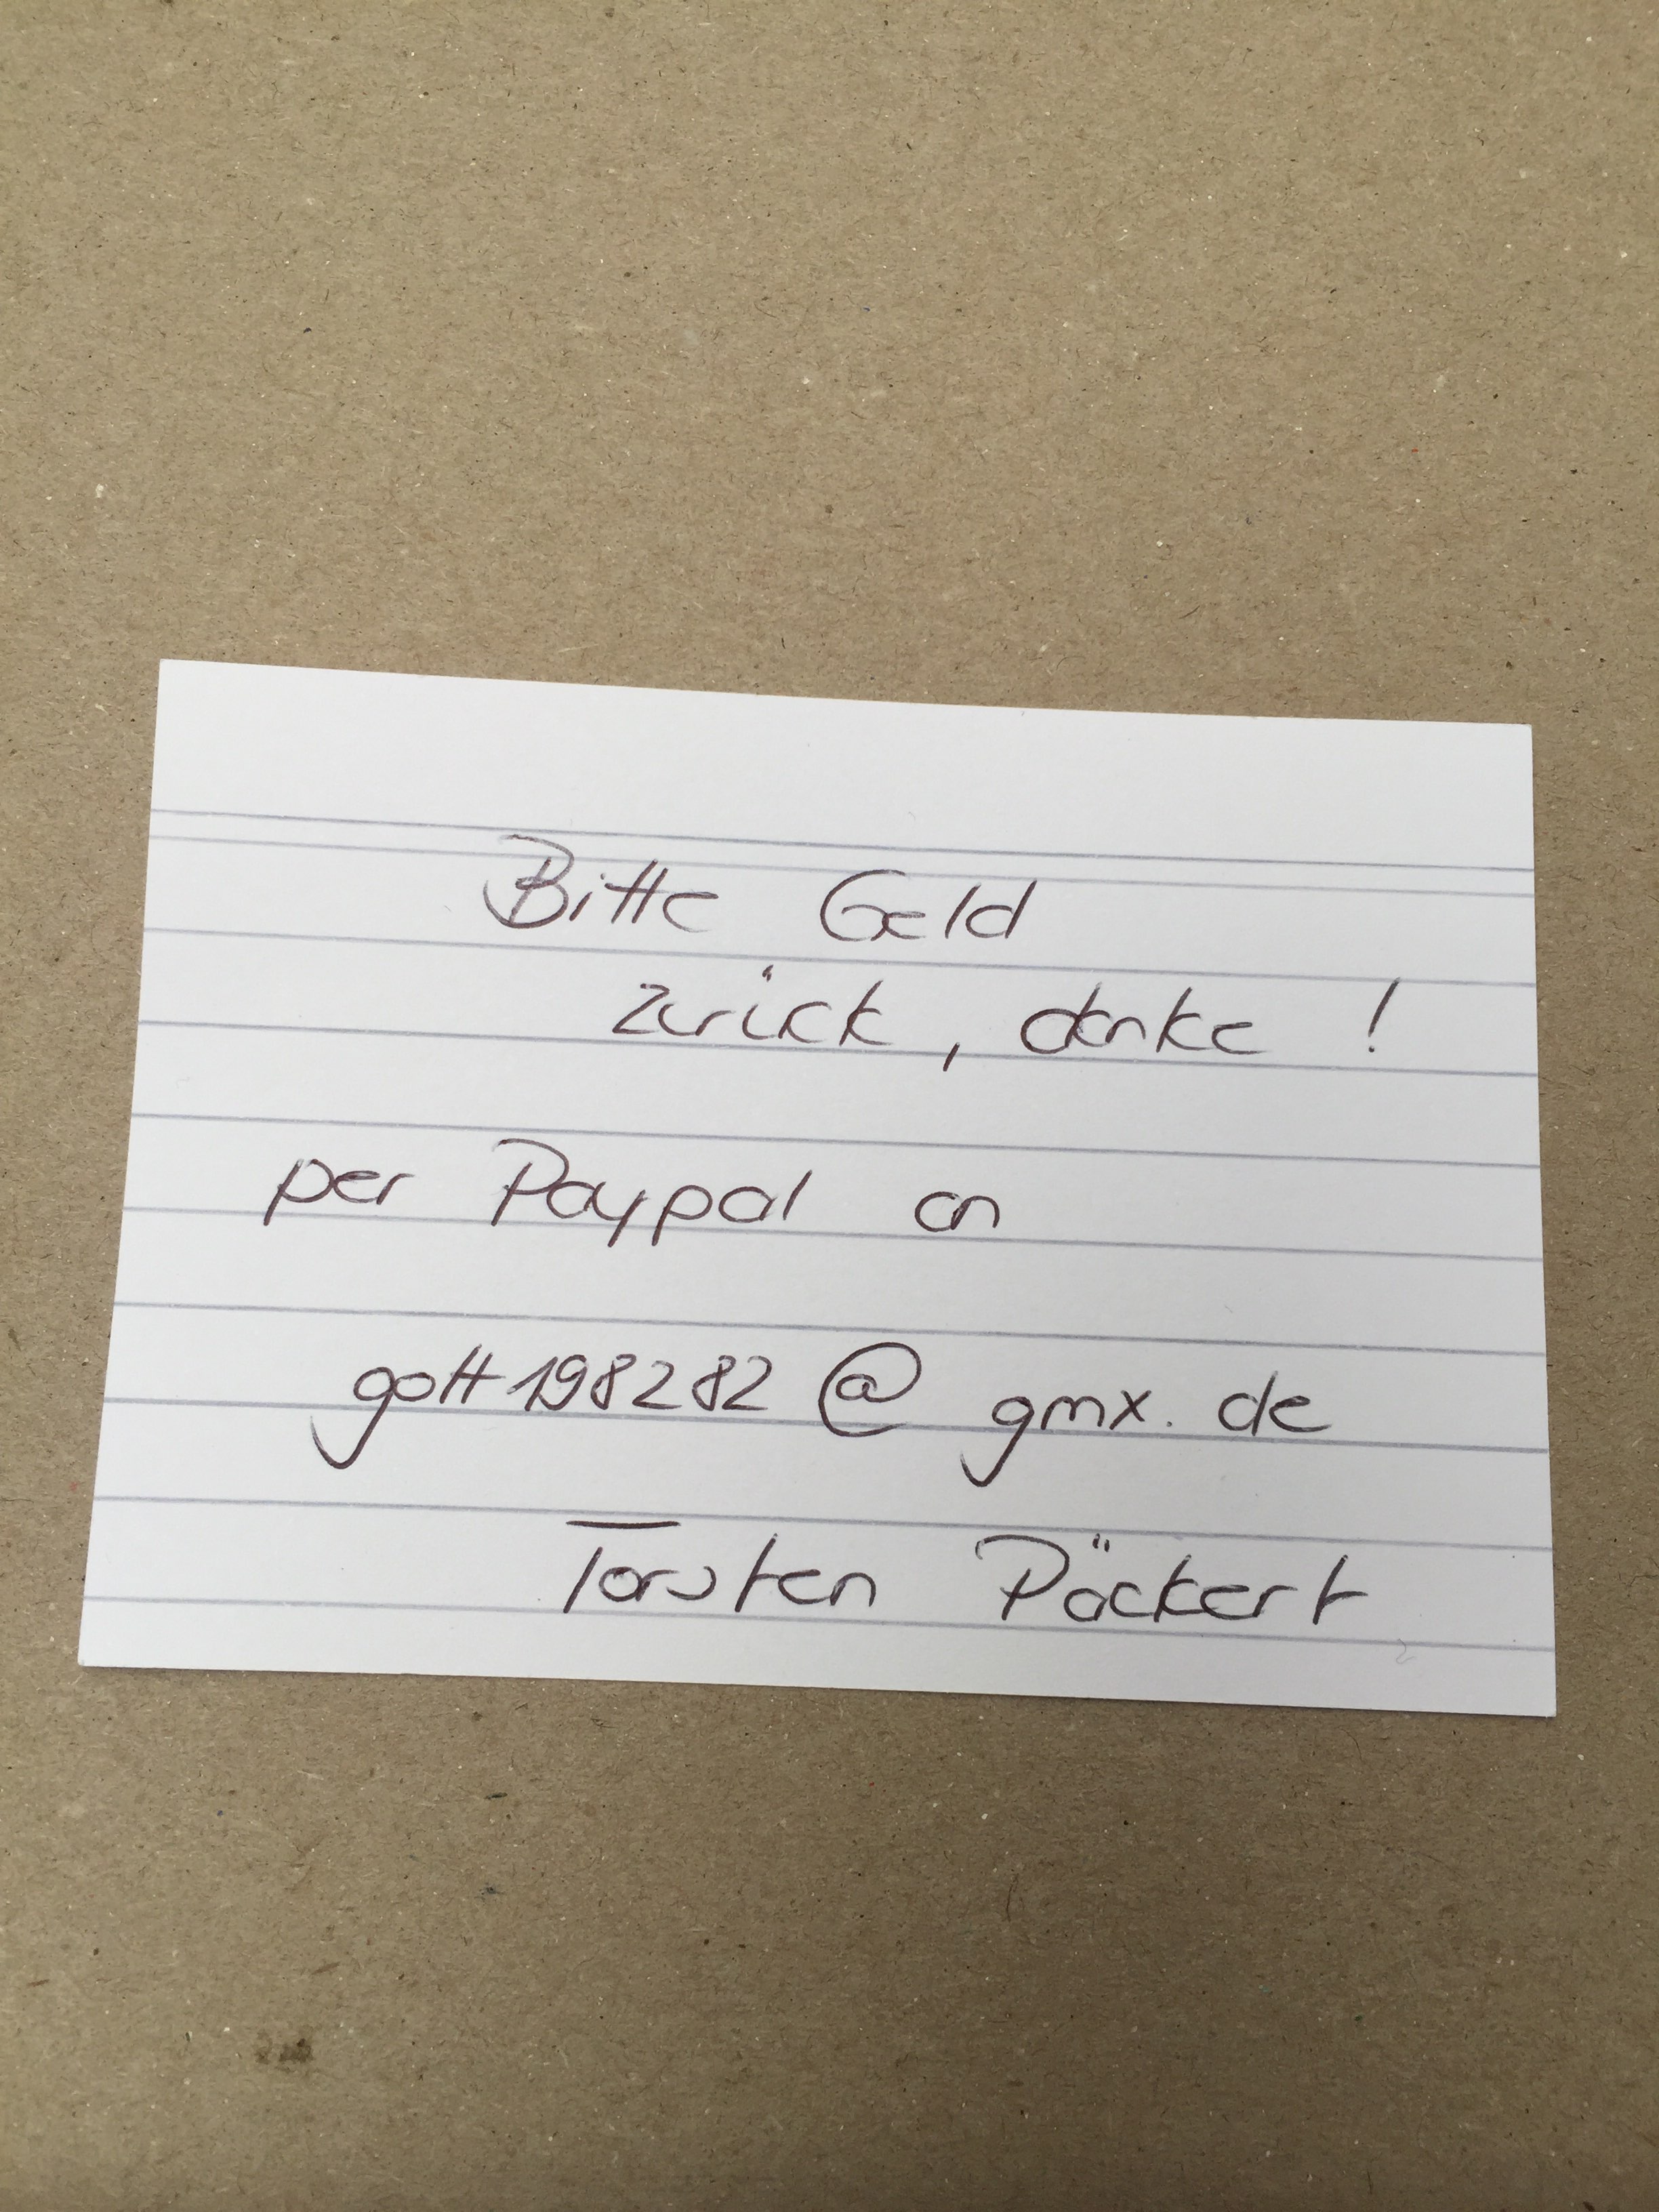 Bitte Geld
zurück, danke!
per Paypal an
gott198282@gmx.de
Torsten Päckert